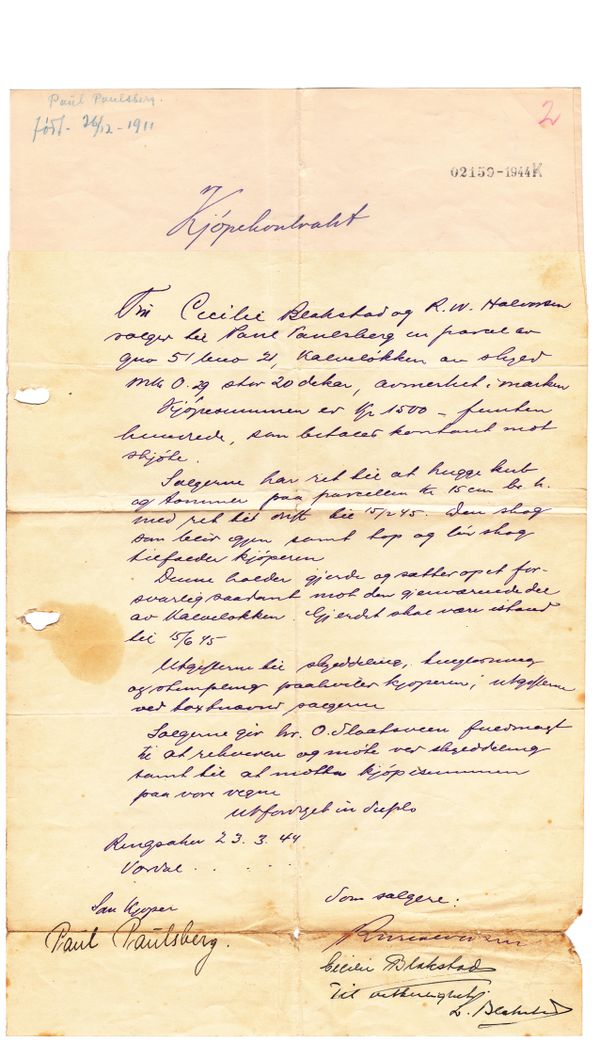 Paul Paulsberg.
født - 26/12 - 1911
2
02150-1944K
Kjøpekontrakt
Cecilie Blakstad og R.W. Halvorsen
selger til Paul Paulsberg en parcel av
gno 51 bno 21, Kalveløkken av skyld
mk 0.29 stor 20 dekar, avmerket i marken
Kjøpesummen er Kr 1500 - femten
hundrede, som betales kontant mot
skjøte.
Sælgerne har ret til at hugge kub
og tømmer paa parcellen 15 cm br. h.
med ret til drift til 15/2 45. Den skog
som blir igjen samt top og løvskog
tilfalder kjøperen
Denne holder gjerde og sætter op et for-
svarlig saadant mot den gjenværende del
av Kalveløkken. Gjerdet skal være istand
til 15/6 45
Utgifterne til skylddeling, tinglysning
og stempling paahviler kjøperen; utgifterne
ved sælgerne
Sælgerne gir hr. O. Slaatsveen fuldmagt
til at rekvirere og møte ved skylddeling
samt til at motta kjøpesummen
paa vore vegne
Utfærdiget in duplo
Ringsaker 23.3.44
Som kjøper
Som sælgere:
Paul Paulsberg.
Cecilie Blakstad
Til vitterlighet:
L. Blakstad